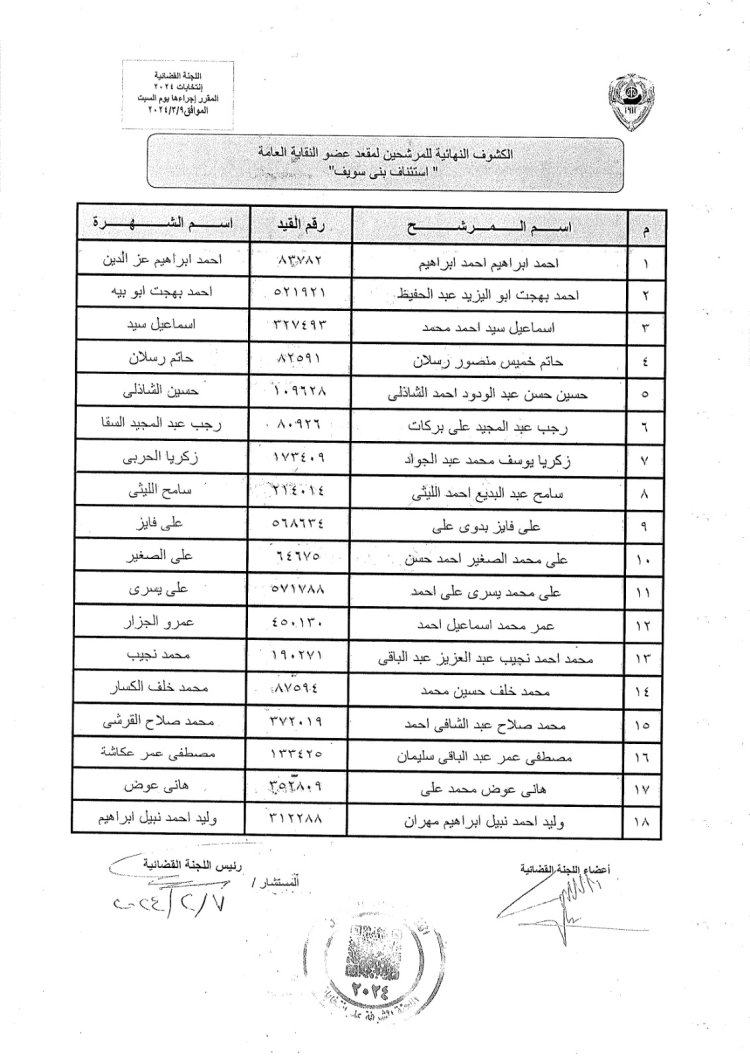 اللجنة القضائية
إنتخابات ٢٠٢٤
المقرر إجراءها يوم السبت
الموافق ٢٠٢٤/٣/٩
١٩١٢
الكشوف النهائية للمرشحين لمقعد عضو النقابة العامة
" استئناف بنى سويف"
م اسم المرشح رقم القيد اسم الشهرة
١ احمد ابراهيم احمد ابراهيم ٨٣٧٨٢ احمد ابراهيم عز الدين
٢ احمد بهجت ابو اليزيد عبد الحفيظ ٥٢١٩٢١ احمد بهجت ابو بيه
٣ اسماعيل سيد احمد محمد ٣٢٧٤٩٣ اسماعيل سيد
٤ حاتم خميس منصور رسلان ٨٢٥٩١ حاتم رسلان
٥ حسين حسن عبد الودود احمد الشاذلى ١٠٩٦٢٨ حسين الشاذلى
٦ رجب عبد المجيد على بركات ٨٠٩٢٦ رجب عبد المجيد السقا
٧ زكريا يوسف محمد عبد الجواد ١٧٣٤٠٩ زكريا الحربى
٨ سامح عبد البديع احمد الليثى ٢١٤٠١٤ سامح الليثى
٩ على فايز بدوى على ٥٦٨٦٣٤ على فايز
١٠ على محمد الصغير احمد حسن ٦٤٦٧٥ على الصغير
١١ على محمد يسرى على احمد ٥٧١٧٨٨ على يسرى
١٢ عمر محمد اسماعيل احمد ٤٥٠١٣٠ عمرو الجزار
١٣ محمد احمد نجيب عبد العزيز عبد الباقى ١٩٠٢٧١ محمد نجيب
١٤ محمد خلف حسين محمد ٨٧٥٩٤ محمد خلف الكسار
١٥ محمد صلاح عبد الشافى احمد ٣٧٢٠١٩ محمد صلاح القرشى
١٦ مصطفى عمر عبد الباقى سليمان ١٣٣٤٢٥ مصطفى عمر عكاشة
١٧ هانى عوض محمد على ٣٥٢٨٠٩ هانى عوض
١٨ وليد احمد نبيل ابراهيم مهران ٣١٢٢٨٨ وليد احمد نبيل ابراهيم
أعضاء اللجنة القضائية
رئيس اللجنة القضائية
المستشار /
٢٠٢٤/٢/٧
٢٠٢٤